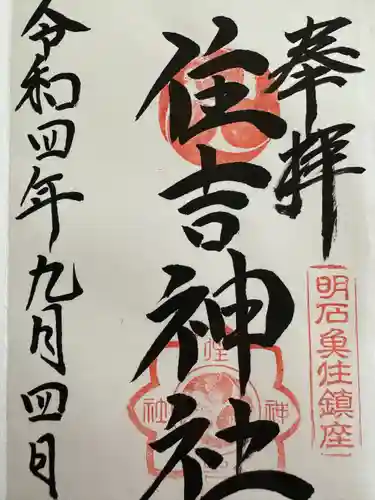 奉拝
明石魚住鎮座
住吉神社
住
神
社
令和四年九月四日